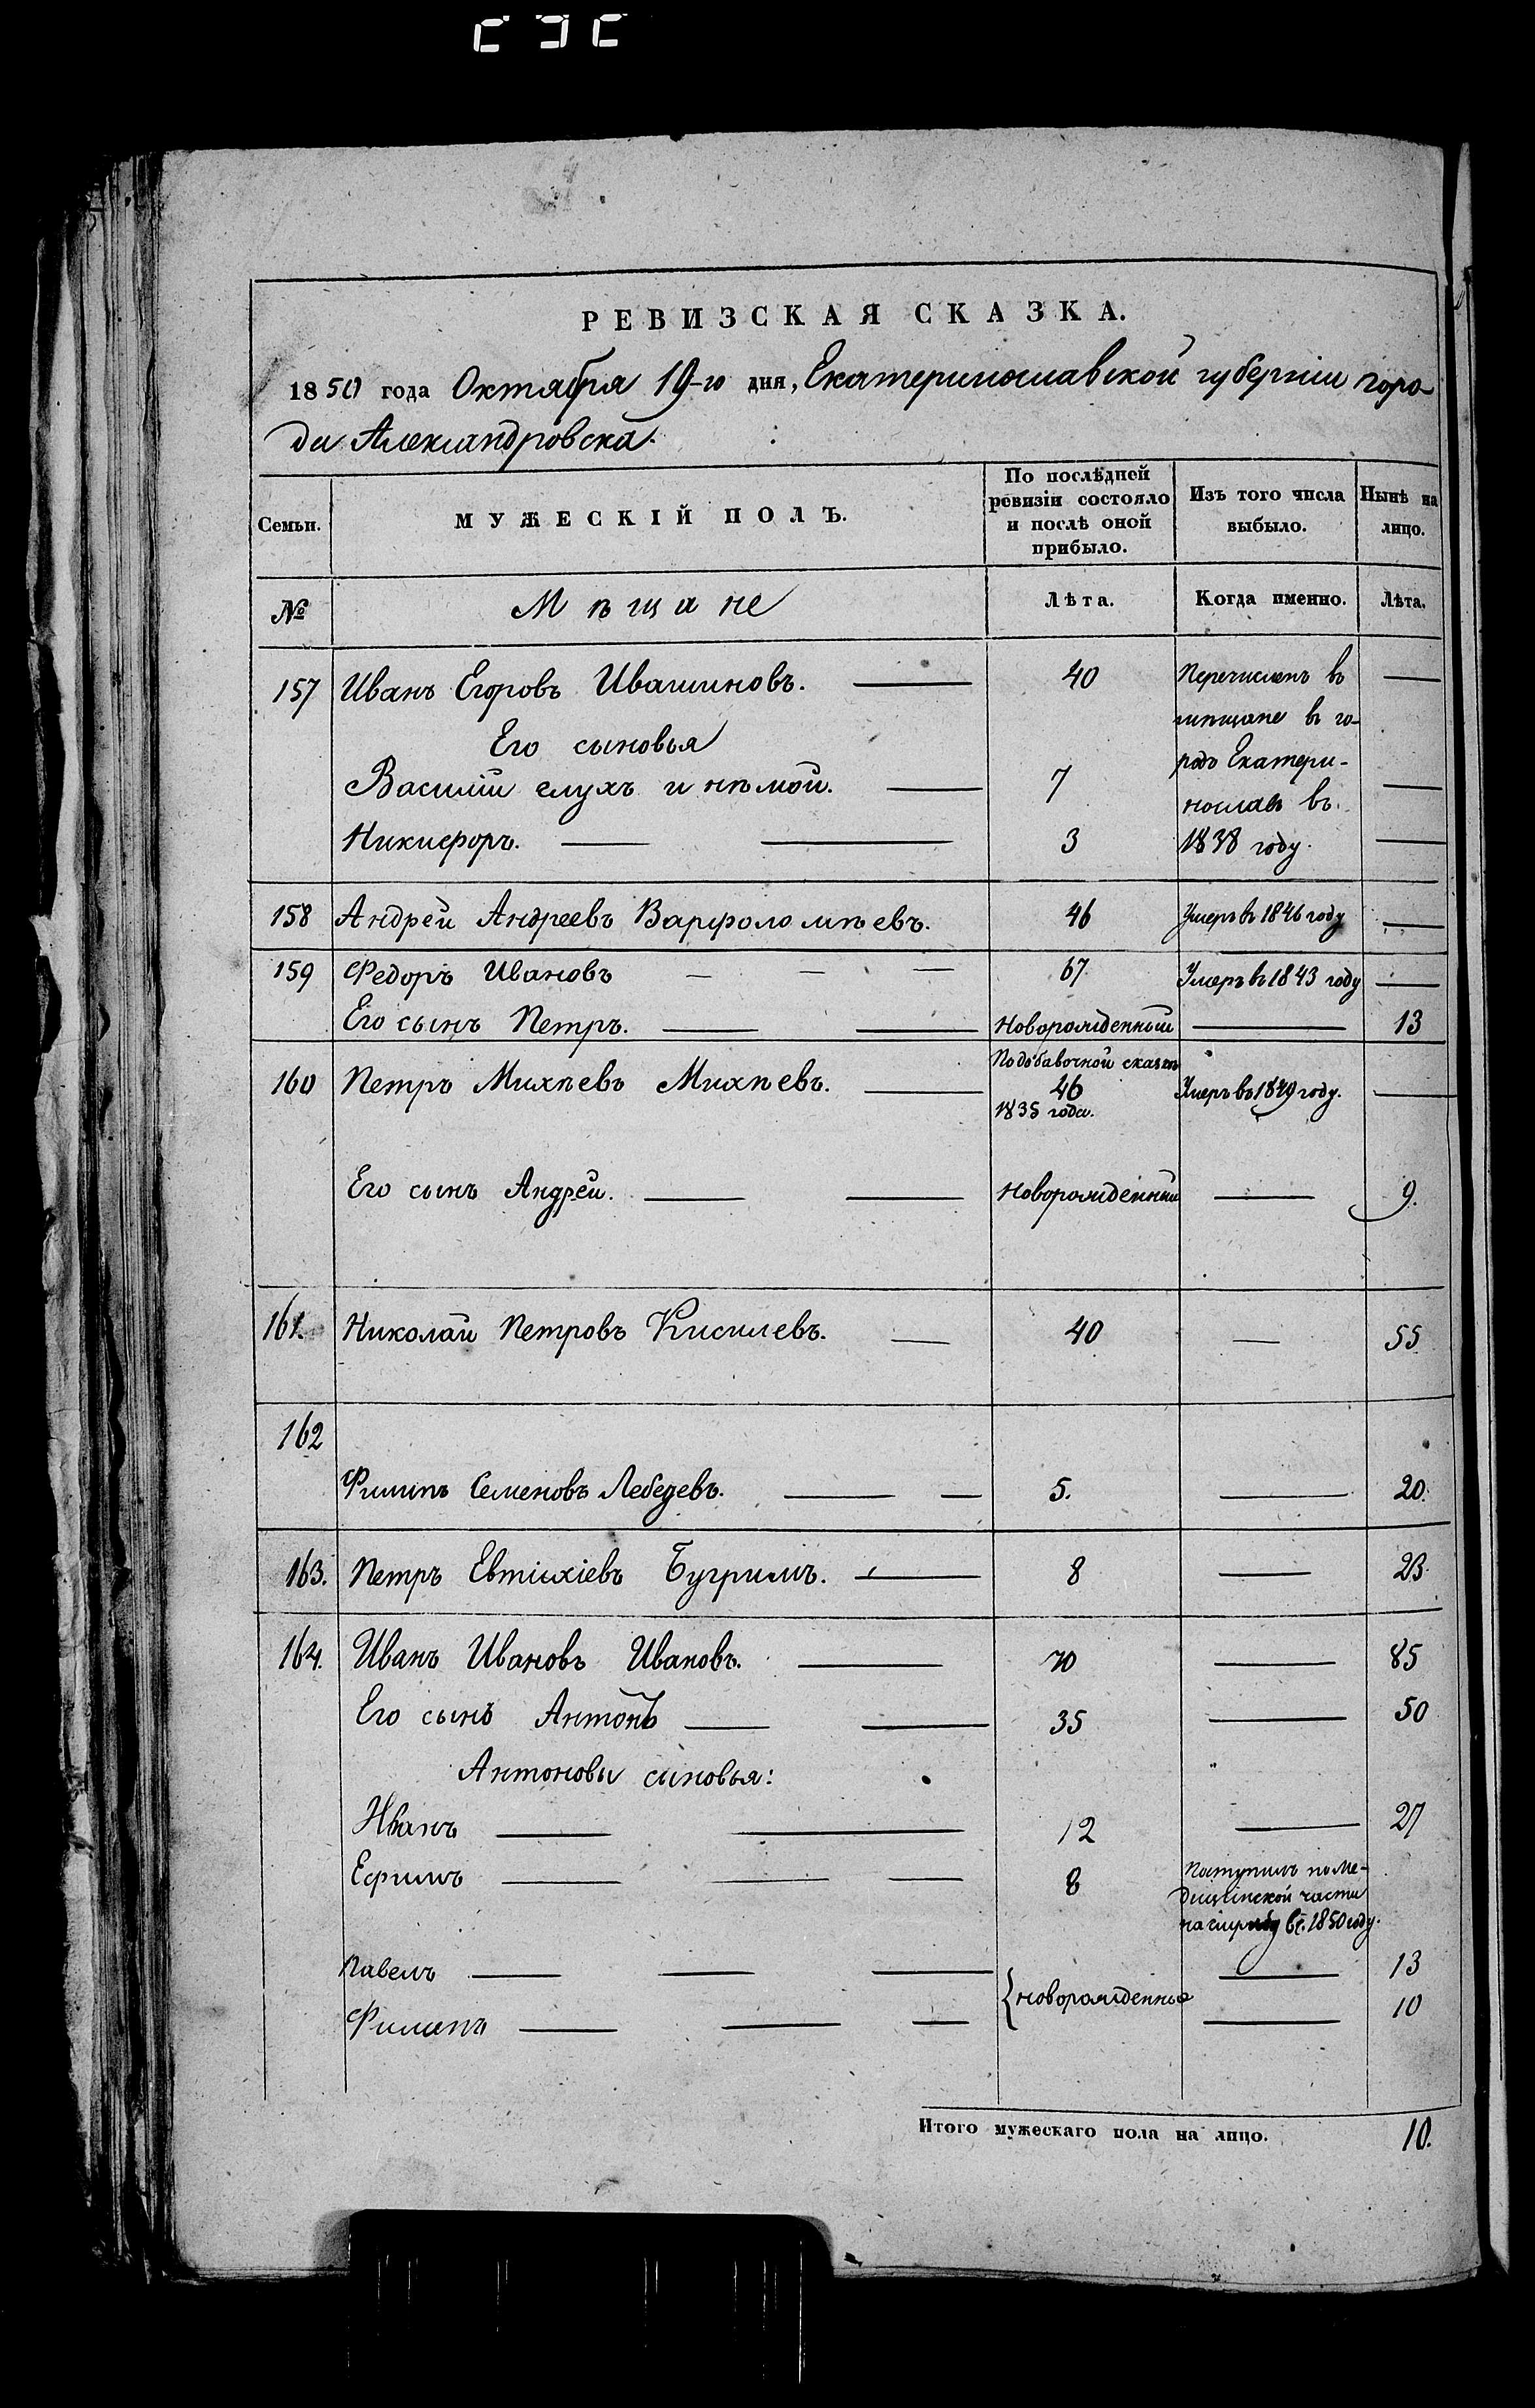 РЕВИЗСКАЯ СКАЗКА.
1850 года Октября 19-го дня, Екатеринославской губернии горо-
да Александровска.
Семьи. МУЖЕСКІЙ ПОЛЪ. По послѣдней ревизіи состояло и послѣ оной прибыло. Изъ того числа выбыло. Нынѣ на лицо.
№ Мѣщане Лѣта. Когда именно. Лѣта.
157 Иванъ Егоровъ Ивашиновъ. — 40 Перечисленъ въ —
мѣщане въ го-
Его сыновья
родъ Екатери-
Василій глухъ и нѣмой. — 7 —
нославъ въ
Никифоръ. — — 3 1838 году. —
158 Андрей Андреевъ Варфоломѣевъ. 46 Умеръ въ 1846 году —
159 Федоръ Ивановъ — — — 67 Умеръ въ 1843 году —
Его сынъ Петръ. — — Новорожденный — 13
По добавочной сказкѣ
160 Петръ Михѣевъ Михѣевъ. — 46 Умеръ въ 1849 году. —
1835 года.
Его сынъ Андрей. — — Новорожденный — 9.
161. Николай Петровъ Кисилевъ. — 40 — 55
162
Филипъ Семеновъ Лебедевъ. — — 5. — 20.
163. Петръ Евтихіевъ Бугримъ. — 8 — 23.
164. Иванъ Ивановъ Ивановъ. — 70 — 85
Его сынъ Антонъ — — 35 — 50
Антоновы сыновья:
Иванъ — — 12 — 27
Ефимъ — — — 8 Поступилъ по Ме-
дицинской части
на службу въ 1850 году.
Павелъ — — — — 13
{новорожденные
Филипъ — — — — 10
Итого мужескаго пола на лицо. 10.